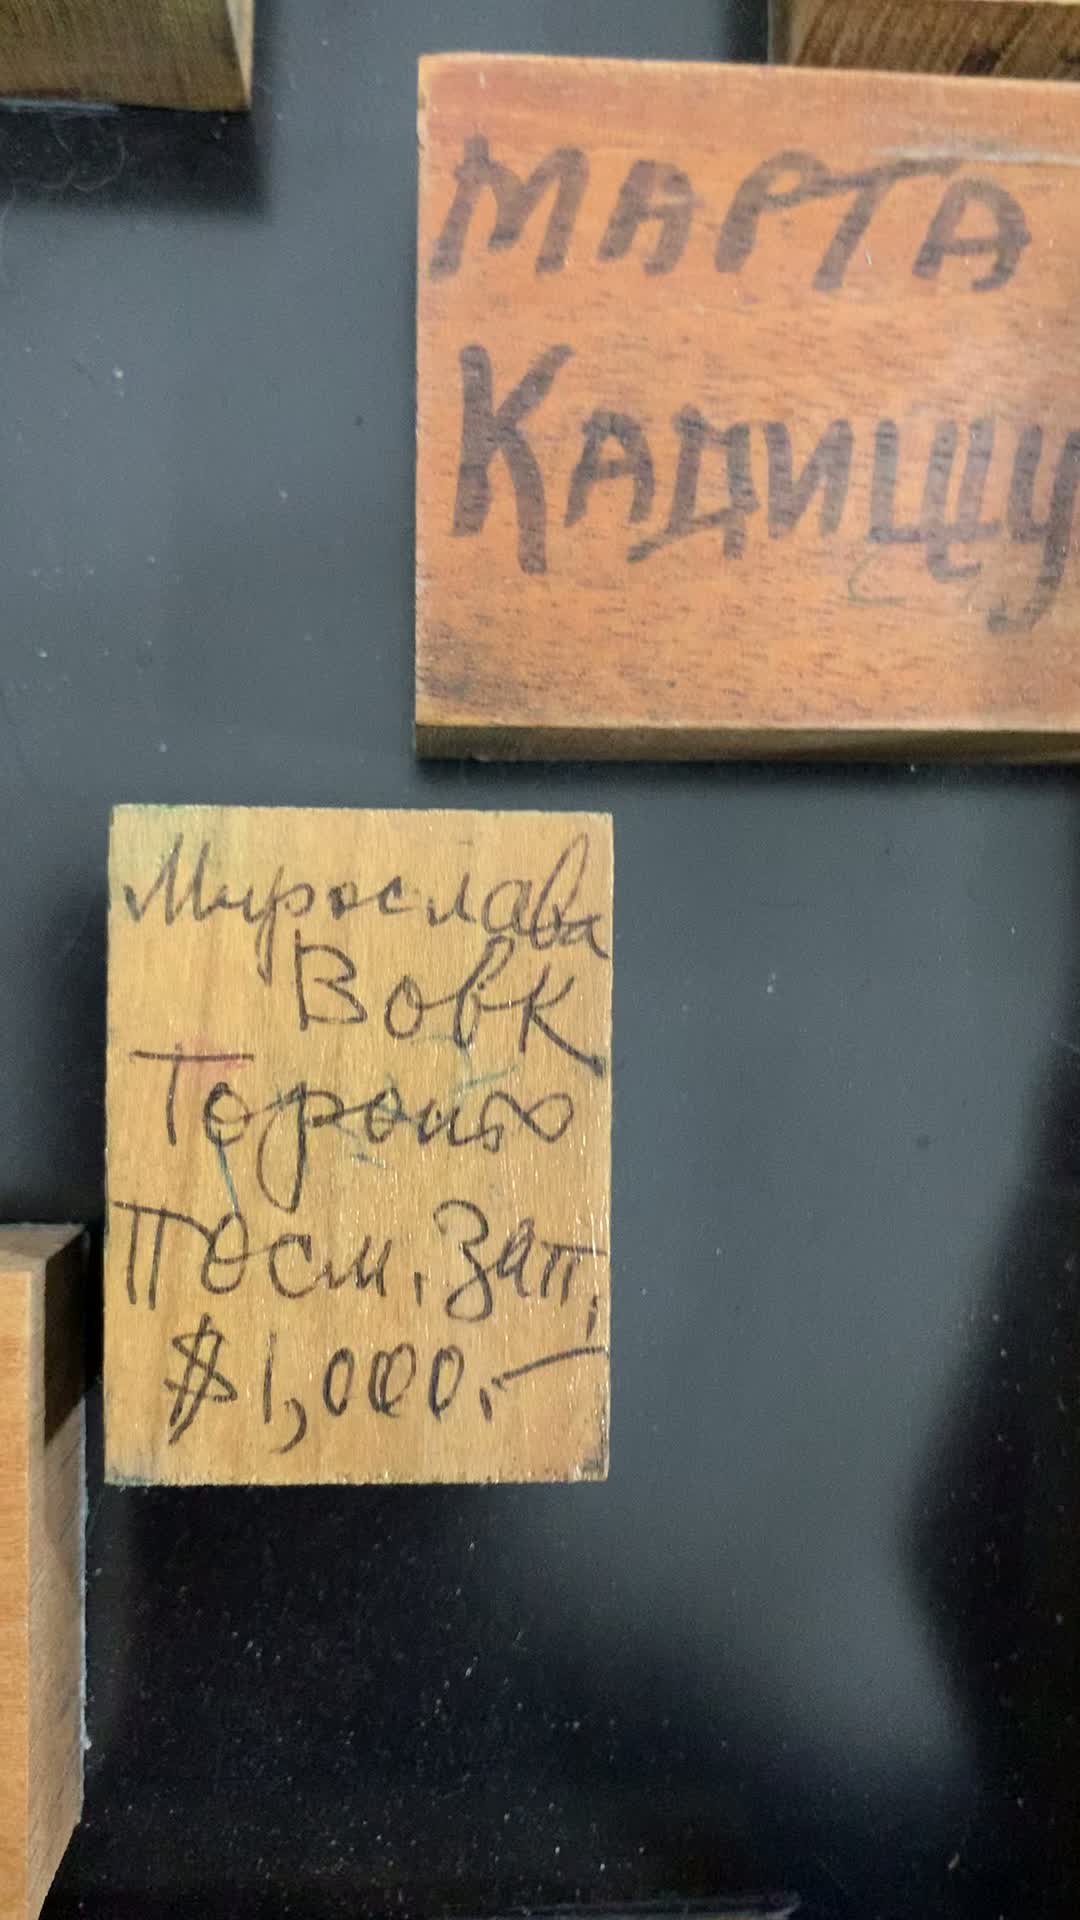 МАРТА
КАДИЩУ
Мирослава
Вовк
Торонто
Посм. Зап.
$1,000.—